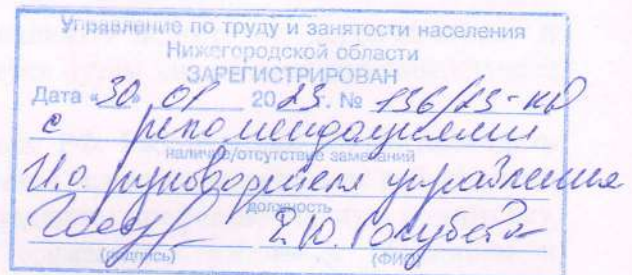 Управление по труду и занятости населения
Нижегородской области
ЗАРЕГИСТРИРОВАН
Дата «30» 01 2023г. № 136/23-КД
с рекомендациями
наличие/отсутствие замечаний
И.о. руководителя управления
должность
Е.Ю.
(подпись) (ФИО)